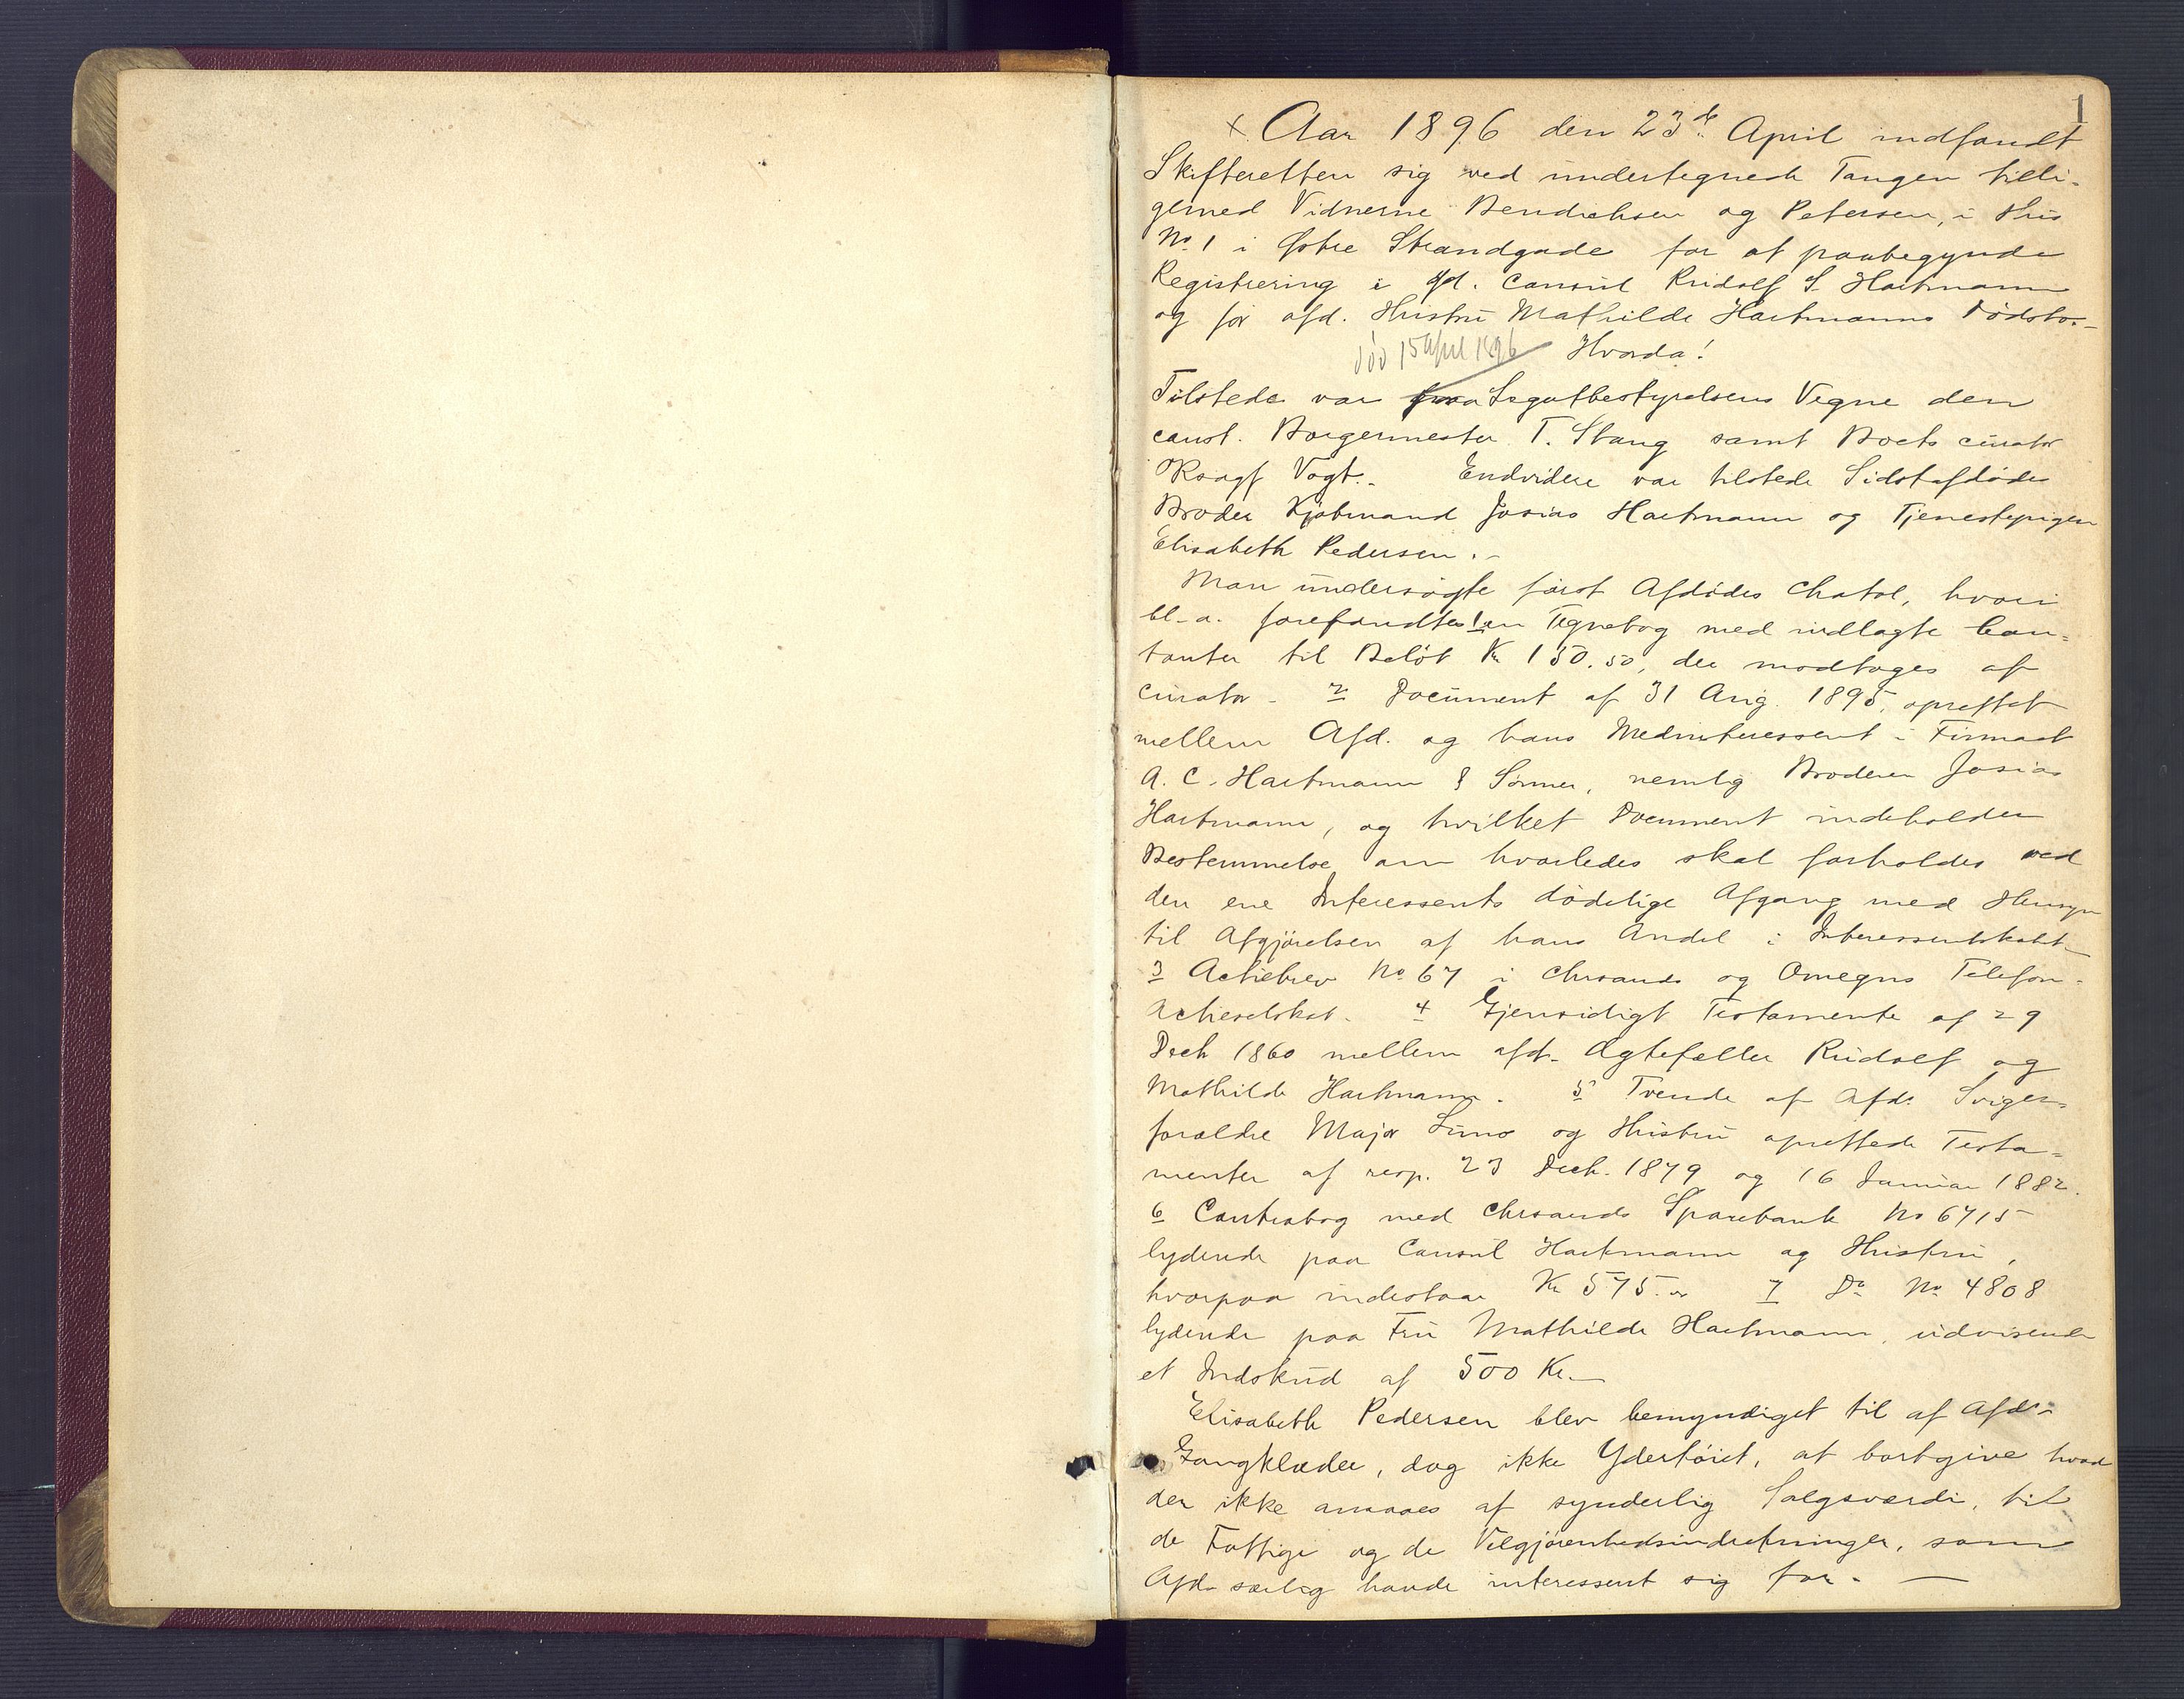 1
x Aar 1896 den 23de April indfandt
Skifteretten sig ved undertegnede Tangen tilli-
gemed Vidnerne Bendichsen og Petersen, i Hus
No 1 i Østre Strandgade for at paabegynde
Registrering i afd. Consul Rudolf S. Hartmann
og før afd. Hustru Mathilde Hartmanns Dødsbo.-
død 15 April 1896 Hvorda!
Tilstede var paa Legatbestyrelsens Vegne den
const. Borgermester T. Stang samt Boets curator
ORsagf Vogt.- Endvidere var tilstede Sidstafdødes
Broder Kjøbmand Josias Hartmann og Tjenestepigen
Elisabeth Pedersen.-
Man undersøgte først Afdødes Chatol, hvori
bl. a. forefandtes 1 en Tegnebog med indlagte Con=
tanter til Beløb Kr 150.50, der modtoges af
curator - 2 Document af 31 Aug. 1895, oprettet
mellem Afd. og hans Medinteressent i Firmaet
A. C. Hartmann & Sønner, nemlig Broderen Josias
Hartmann, og hvilket Document indeholder
Bestemmelse om hvorledes skal forholdes ved
den ene Interessents dødelige Afgang med Hensyn
til Afgjørelsen af hans Andel i Interessentskabet
3 Actiebrev No 67 i Chrsands og Omegns Telefon-
actieselskab. 4 Gjensidigt Testamente af 29
Decb 1860 mellem afd. Ægtefæller Rudolf og
Mathilde Hartmann. 5 Tvende af Afds Sviger=
forældre Major og Hustru oprettede Testa=
menter af resp. 23 Decb. 1879 og 16 Januar 1882.
6 Contrabog med Chrsands Sparebank No 6715
lydende paa Consul Hartmann og Hustru,
hvorpaa indestaar Kr 575.00 7 Do No 4808
lydende paa Fru Mathilde Hartmann, udvisende
et Indskud af 500 Kr.-
Elisabeth Pedersen blev bemyndiget til af Afds
Gangklæder, dog ikke Ydertøiet, at bortgive hvad
der ikke ansaaes af synderlig Salgsværdi, til
de Fattige og de Velgjørenhedsindretninger, som
Afd. særlig havde interessert sig for. -